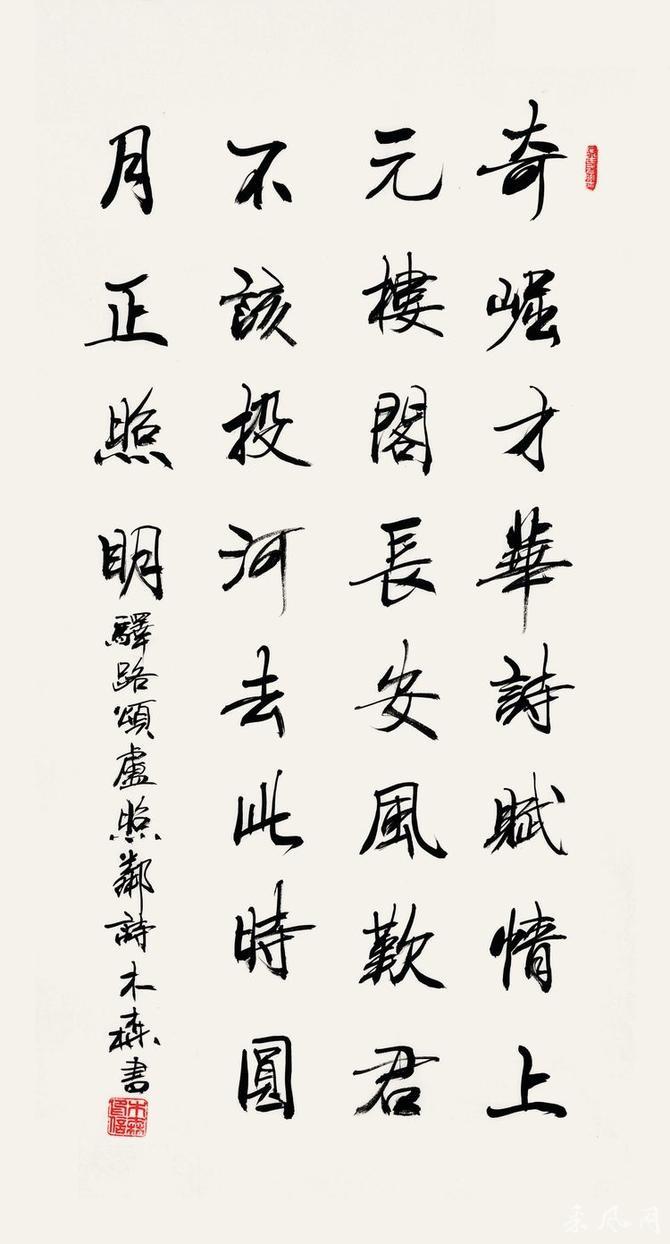 奇崛才華詩賦情上
元樓閣長安風歎君
不該投河去此時圓
月正照明
驛路頌盧照鄰詩木森書
木森
采风网